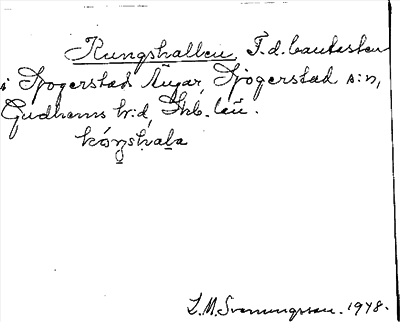 Kungshallen, F.d. bautasten
i Sjogerstad Nygar, Sjogerstad s:n,
Gudhems hr:d, Skb. län.
kóŋshala
L.M. Svenungsson. 1948.